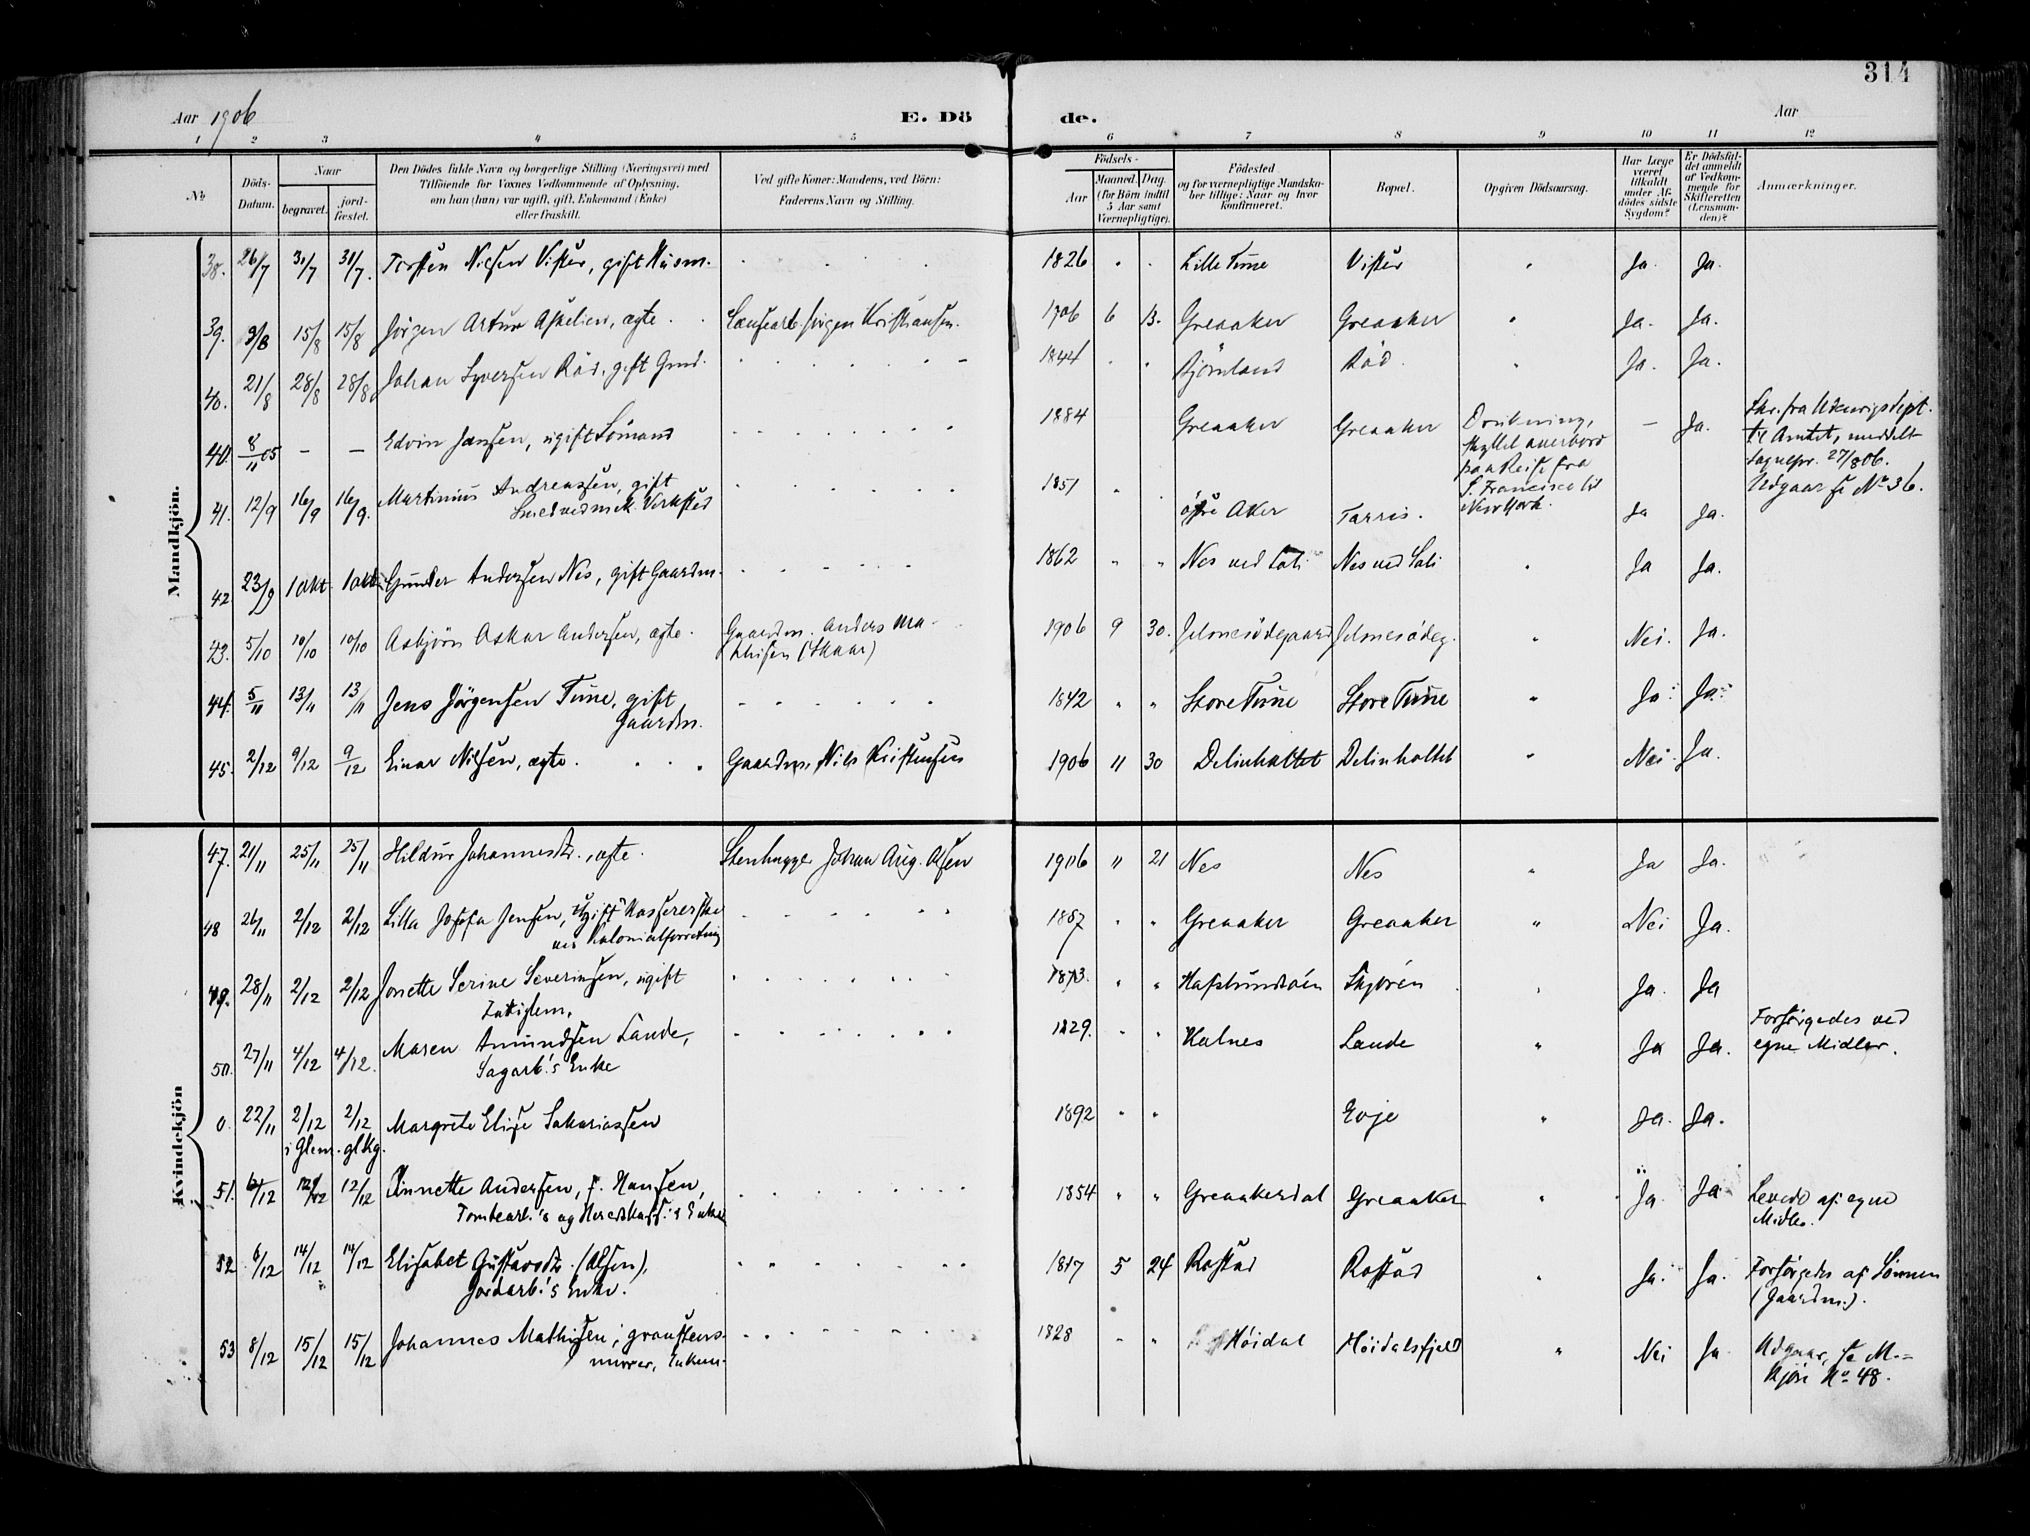 314
Aar 1906 E. Dö de. Aar
1 2 3 4 5 6 7 8 9 10 11 12
No
Döds-
Datum.
Naar
begravet.
jord-
fæstet.
Den Dödes fulde Navn og borgerlige Stilling (Næringsvei) med
Tilföiende for Voxnes Vedkommende af Oplysning,
om han (hun) var ugift, gift, Enkemand (Enke)
eller fraskilt.
Ved gifte Koner: Mandens, ved Börn:
Faderens Navn og Stilling.
Födsels-
Aar
Maaned.
Dag.
(for Börn indtil
5 Aar samt
Værnepligtige).
Födested
og for værnepligtige Mandska-
ber tillige: Naar og hvor
konfirmeret.
Bopæl.
Opgiven Dödsaarsag.
Har Læge
været
tilkaldt
under Af-
dödes sidste
Sygdom?
Er Dödsfal-
det anmeldt
af Vedkom-
mende for
Skifteretten
(Lensman-
den)?
Anmærkninger.
Mandkjön.
38. 26/7 31/7 31/7. Torsten Nilsen Vister, gift Husm. 1826 Lille Tune Vister Ja. Ja.
39. 9/8 15/8 15/8 Jörgen Artur Askelien, ægte. Lænsearb. Jörgen Kristiansen. 1906 6 13. Greaaker Greaaker Ja. Ja.
40. 21/8 28/8 28/8 Johan Syversen Råd, gift Grd. 1844 Björnland Råd. Ja. Ja.
40. 8/11 05 – – Edvin Jansen, ugift Sömand 1884 Greaaker Greaaker Drukning,
skyllet overbord
paa Reise fra
S. Francisco til
New York. – Ja. Skr. fra Udenrigsdept.
til Amtet, meddelt
Sognepr. 27/8 06.
Udgaar se No 36.
41. 12/9 16/9 16/9. Martinius Andreassen, gift
Smed ved mek. Verksted 1851 östre Aker Tarris. Ja Ja.
42 23/9 1 okt. 1 okt. Gunder Andersen Nes, gift Gaardm. 1862 Nes ved Soli Nes ved Soli Ja Ja.
43. 5/10 10/10 10/10 Asbjörn Oskar Andersen, ægte. Gaardm. Anders Ma-
thisen (Skaar) 1906 9 30. Jelsnesödegaard Jelsnesödeg. Nei. Ja.
44. 5/11 13/11 13/11 Jens Jörgensen Tune, gift
Gaardm. 1842 Store Tune Store Tune Ja. Ja.
45. 2/12 9/12 9/12 Einar Nilsen, ægte. Gaardm. Nils Kristensen 1906 11 30 Delinholtet Delinholtet Nei. Ja.
Kvindekjön
47. 21/11 25/11 25/11 Hildur Johannesd., ægte. Stenhugger Johan Aug. Olsen 1906 11 21 Nes Nes Ja Ja.
48 26/11 2/12 2/12 Lilla Josefa Jensen, ugift Kassererske
ved Kolonialforretning 1867 Greaaker Greaaker Nei Ja.
49. 28/11 2/12 2/12 Jonette Serine Severinsen, ugift
Fattiglem. 1873. Hafslundsöen Skjören Ja. Ja
50. 27/11 4/12 4/12. Maren Amundsen Lande,
Sagarb.'s Enke 1829. Kalnes Lande Ja Ja. Forsörgedes ved
egne Midler.
0. 22/11 2/12 2/12 Margrete Elise Sakariassen 1892 Evje Ja. Ja.
i Glem. gl Kg.
51. 6/12 12/12 12/12 Annette Andersen, f. Hansen,
Tomtearb.'s og Herredskass.'s Enke 1854 Greaakerdal Greaaker Ja. Ja Levede af egne
Midler.
52 6/12 14/12 14/12 Elisabet Gustavsd. (Olsen),
Jordarb.'s Enke. 1817 5 24 Rostad Rostad Ja. Ja. Forsörgedes af Sönnen
(Gaardm.).
53 8/12 15/12 15/12 Johannes Mathisen, graastens-
murer, Enkem. 1828 Höidal Höidalsfjeld Nei Ja Udgaar, se M.-
kjön No 48.